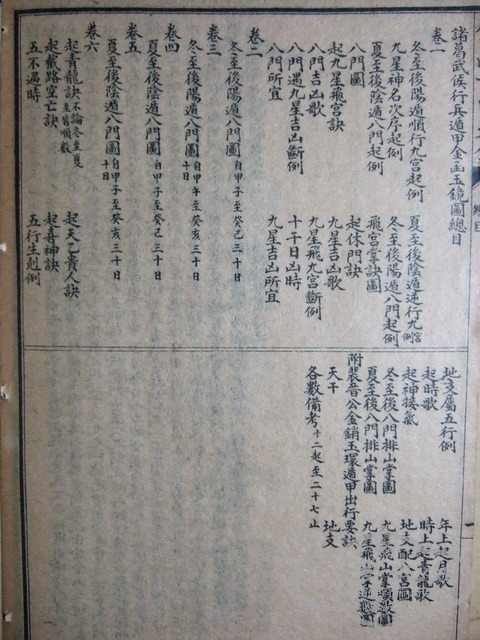 諸葛武侯行兵遁甲金函玉鏡圖總目
卷一
冬至後陽遁順行九宮起例
夏至後陰遁逆行九宮例
九星神名次序起例
冬至後陽遁八門起例
夏至後陰遁八門起例
飛宮掌訣圖
八門圖
起休門訣
起九星飛宮訣
九星吉凶歌
八門吉凶歌
九星飛九宮斷例
八門遇九星吉凶斷例
十干日凶時
八門所宜
九星吉凶所宜
卷二
冬至後陽遁八門圖 自甲子至癸巳三十日
卷三
冬至後陽遁八門圖 自甲午至癸亥三十日
卷四
夏至後陰遁八門圖 自甲子至癸巳三十日
卷五
夏至後陰遁八門圖 自甲子至癸亥三十日
卷六
起青龍訣 不論冬至夏至皆順數
起天乙貴人訣
起截路空亡訣
起喜神訣
五不遇時
五行生剋例
地支屬五行例
年上起月歌
起時歌
時上起青龍歌
起神接氣
地支配八宮圖
冬至後八門排山掌圖
九星飛山掌順數圖
夏至後八門排山掌圖
九星飛山掌逆數圖
附裴晉公金鎖玉環遁甲出行要訣
天干
地支
各數備考 十二起至二十七止